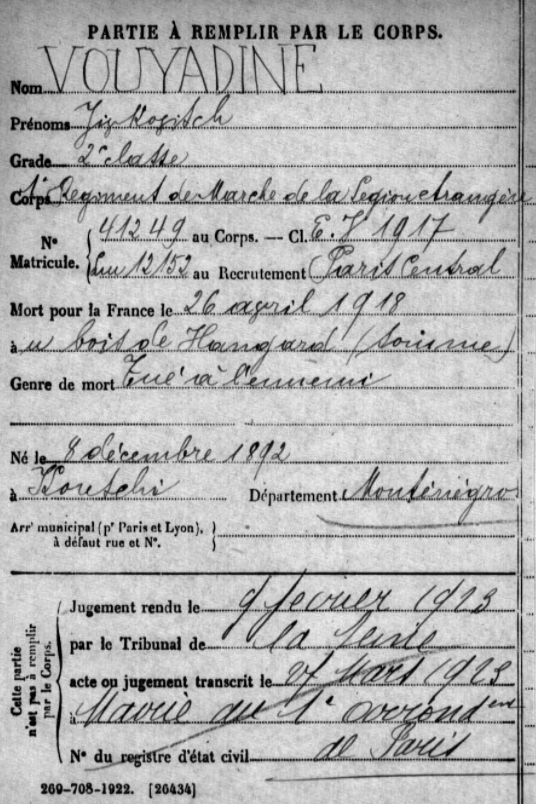 PARTIE À REMPLIR PAR LE CORPS.
Nom VOUYADINE
Prénoms Jivkogitch
Grade 2e classe
Corps 1er Régiment de Marche de la Légion étrangère
N° Matricule. { 41249 au Corps. — Cl. E. V 1917
12152 au Recrutement Paris Central
Mort pour la France le 26 avril 1918
à u bois de Hangard (Somme)
Genre de mort Tué à l'ennemi
Né le 8 décembre 1892
à Koretchi Département Monténégro
Arrt municipal (pr Paris et Lyon), à défaut rue et N°. }
Cette partie n'est pas à remplir par le Corps.
Jugement rendu le 9 février 1923
par le Tribunal de la Seine
acte ou jugement transcrit le 27 Mars 1923
à Mairie du 1e arrondent
de Paris
N° du registre d'état civil
269-708-1922. [26434]